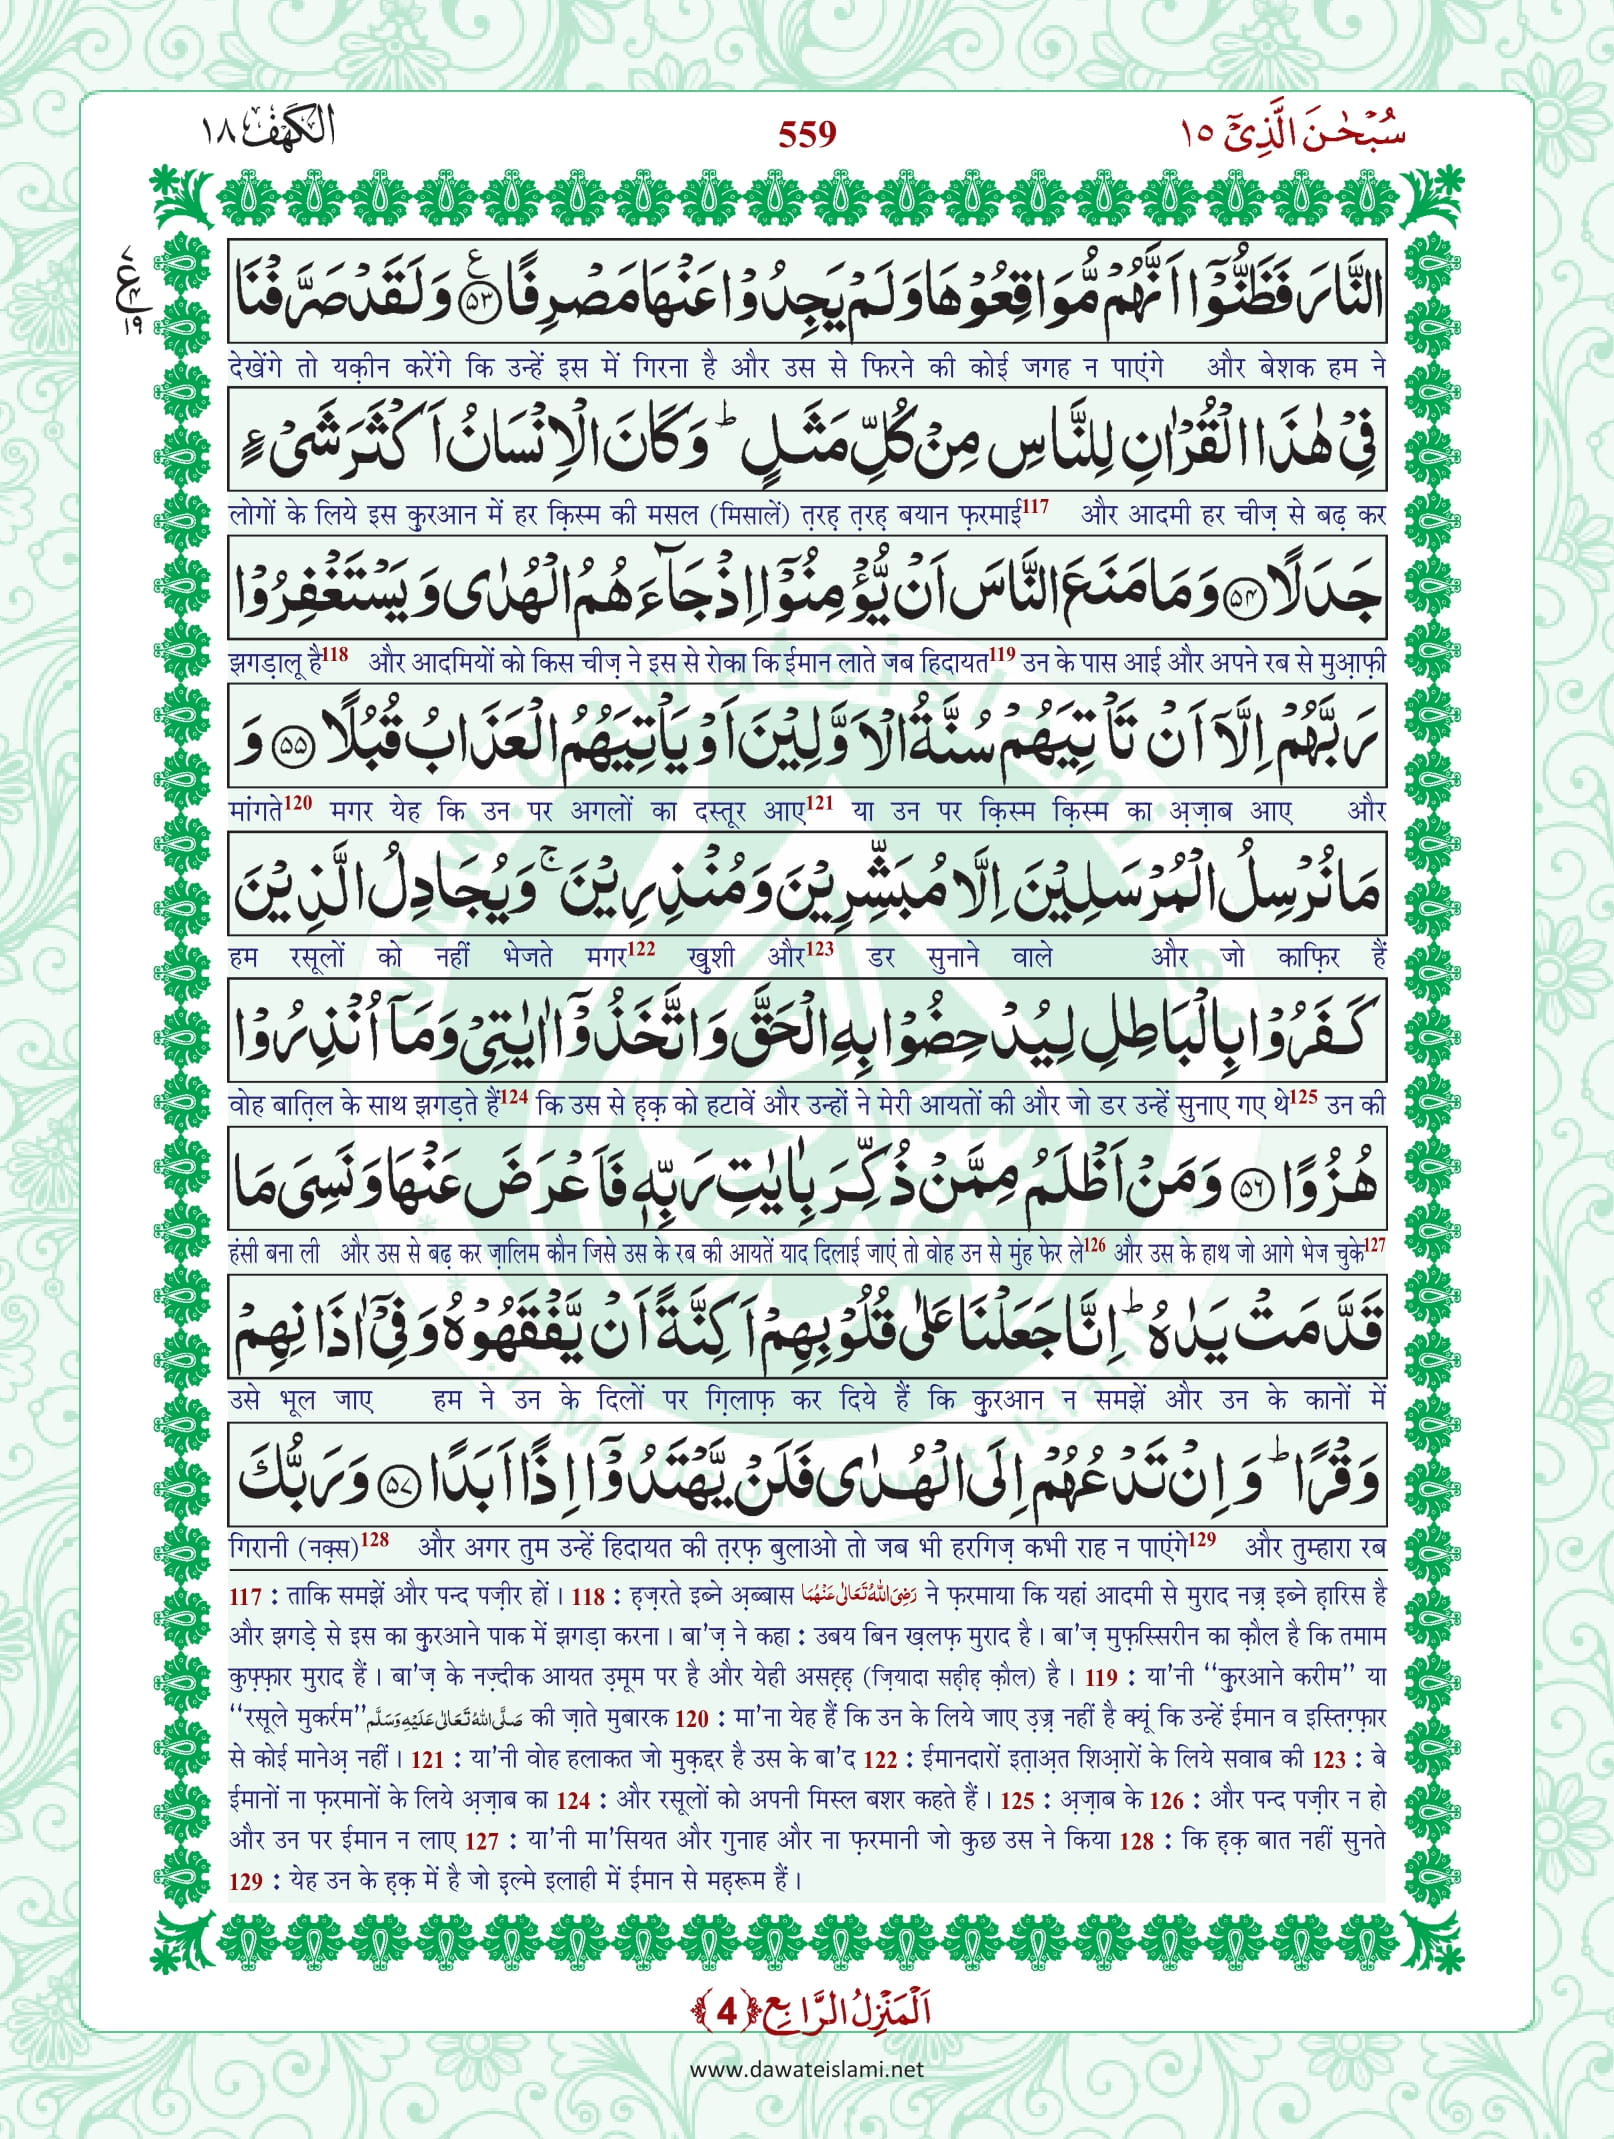 الكهف ١٨
559
سُبْحٰنَ الَّذِیْۤ ١٥
النَّارَ فَظَنُّوْۤا اَنَّهُمْ مُّوَاقِعُوْهَا وَلَمْ یَجِدُوْا عَنْهَا مَصْرِفًا ﴿۵۳﴾ وَ لَقَدْ صَرَّفْنَا
देखेंगे तो यक़ीन करेंगे कि उन्हें इस में गिरना है और उस से फिरने की कोई जगह न पाएंगे और बेशक हम ने
فِیْ هٰذَا الْقُرْاٰنِ لِلنَّاسِ مِنْ كُلِّ مَثَلٍ ؕ وَ كَانَ الْاِنْسَانُ اَكْثَرَ شَیْءٍ
लोगों के लिये इस क़ुरआन में हर क़िस्म की मसल (मिसालें) त़रह़ त़रह़ बयान फ़रमाई117 और आदमी हर चीज़ से बढ़ कर
جَدَلًا ﴿۵۴﴾ وَ مَا مَنَعَ النَّاسَ اَنْ یُّؤْمِنُوْۤا اِذْ جَآءَهُمُ الْهُدٰی وَ یَسْتَغْفِرُوْا
झगड़ालू है118 और आदमियों को किस चीज़ ने इस से रोका कि ईमान लाते जब हिदायत119 उन के पास आई और अपने रब से मुआ़फ़ी
رَبَّهُمْ اِلَّاۤ اَنْ تَاْتِیَهُمْ سُنَّةُ الْاَوَّلِیْنَ اَوْ یَاْتِیَهُمُ الْعَذَابُ قُبُلًا ﴿۵۵﴾ وَ
मांगते120 मगर येह कि उन पर अगलों का दस्तूर आए121 या उन पर क़िस्म क़िस्म का अ़ज़ाब आए और
مَا نُرْسِلُ الْمُرْسَلِیْنَ اِلَّا مُبَشِّرِیْنَ وَ مُنْذِرِیْنَ ۚ وَ یُجَادِلُ الَّذِیْنَ
हम रसूलों को नहीं भेजते मगर122 ख़ुशी और123 डर सुनाने वाले और जो काफ़िर हैं
كَفَرُوْا بِالْبَاطِلِ لِیُدْحِضُوْا بِهِ الْحَقَّ وَ اتَّخَذُوْۤا اٰیٰتِیْ وَ مَاۤ اُنْذِرُوْا
वोह बात़िल के साथ झगड़ते हैं124 कि उस से ह़क़ को हटावें और उन्हों ने मेरी आयतों की और जो डर उन्हें सुनाए गए थे125 उन की
هُزُوًا ﴿۵۶﴾ وَ مَنْ اَظْلَمُ مِمَّنْ ذُكِّرَ بِاٰیٰتِ رَبِّهٖ فَاَعْرَضَ عَنْهَا وَ نَسِیَ مَا
हंसी बना ली और उस से बढ़ कर ज़ालिम कौन जिसे उस के रब की आयतें याद दिलाई जाएं तो वोह उन से मुंह फेर ले126 और उस के हाथ जो आगे भेज चुके127
قَدَّمَتْ یَدٰهُ ؕ اِنَّا جَعَلْنَا عَلٰی قُلُوْبِهِمْ اَكِنَّةً اَنْ یَّفْقَهُوْهُ وَ فِیْۤ اٰذَانِهِمْ
उसे भूल जाए हम ने उन के दिलों पर ग़िलाफ़ कर दिये हैं कि क़ुरआन न समझें और उन के कानों में
وَقْرًا ؕ وَ اِنْ تَدْعُهُمْ اِلَی الْهُدٰی فَلَنْ یَّهْتَدُوْۤا اِذًا اَبَدًا ﴿۵۷﴾ وَ رَبُّكَ
गिरानी (नक़्स)128 और अगर तुम उन्हें हिदायत की त़रफ़ बुलाओ तो जब भी हरगिज़ कभी राह न पाएंगे129 और तुम्हारा रब
117 : ताकि समझें और पन्द पज़ीर हों। 118 : ह़ज़रते इब्ने अ़ब्बास رَضِیَ اللهُ تَعَالٰی عَنْهُمَا ने फ़रमाया कि यहां आदमी से मुराद नज़्र इब्ने ह़ारिस है
और झगड़े से इस का क़ुरआने पाक में झगड़ा करना। बा'ज़ ने कहा : उबय बिन ख़लफ़ मुराद है। बा'ज़ मुफ़स्सिरीन का क़ौल है कि तमाम
कुफ़्फ़ार मुराद हैं। बा'ज़ के नज़्दीक आयत उ़मूम पर है और येही असह़्ह़ (ज़ियादा सह़ीह़ क़ौल) है। 119 : या'नी “क़ुरआने करीम” या
“रसूले मुकर्रम” صَلَّی اللهُ تَعَالٰی عَلَیْهِ وَسَلَّم की ज़ाते मुबारक 120 : मा'ना येह हैं कि उन के लिये जाए उ़ज़्र नहीं है क्यूं कि उन्हें ईमान व इस्तिग़्फ़ार
से कोई मानेअ़ नहीं। 121 : या'नी वोह हलाकत जो मुक़द्दर है उस के बा'द 122 : ईमानदारों इत़ाअ़त शिआ़रों के लिये सवाब की 123 : बे
ईमानों ना फ़रमानों के लिये अ़ज़ाब का 124 : और रसूलों को अपनी मिस्ल बशर कहते हैं। 125 : अ़ज़ाब के 126 : और पन्द पज़ीर न हो
और उन पर ईमान न लाए 127 : या'नी मा'सियत और गुनाह और ना फ़रमानी जो कुछ उस ने किया 128 : कि ह़क़ बात नहीं सुनते
129 : येह उन के ह़क़ में है जो इ़ल्मे इलाही में ईमान से मह़रूम हैं।
اَلْمَنْزِلُ الرَّابِع ﴿4﴾
www.dawateislami.net